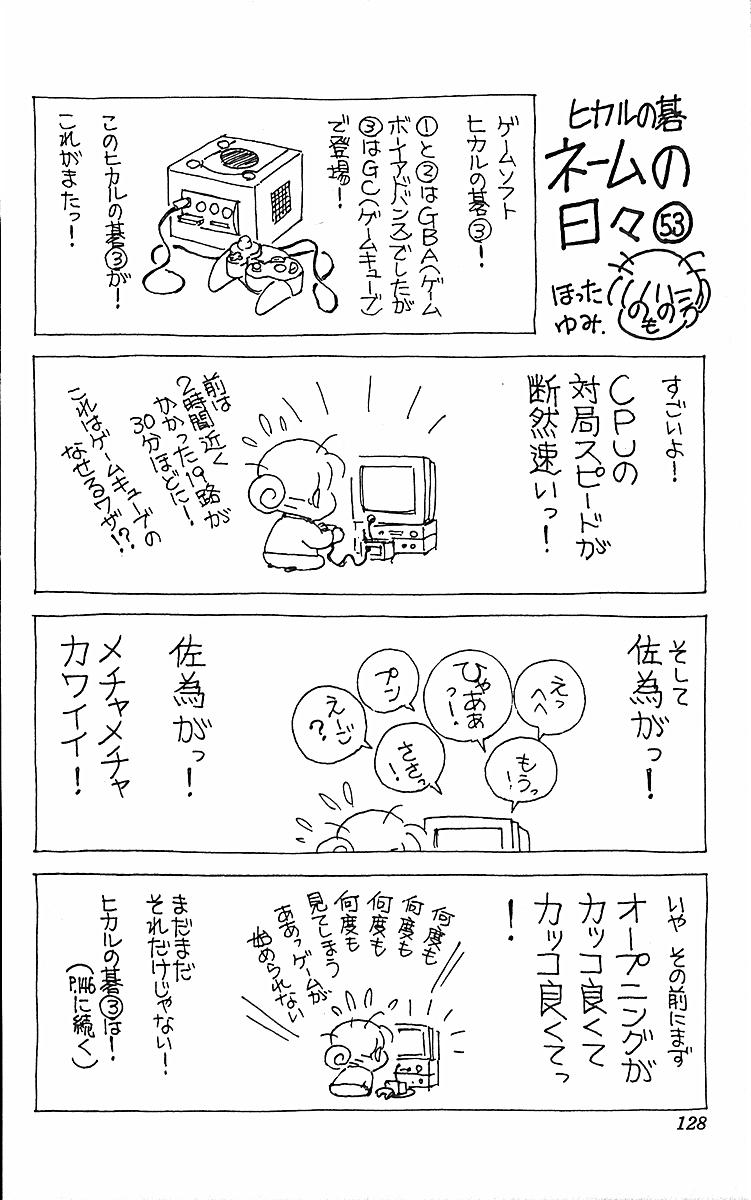 ヒカルの碁
ネームの
日々53
ほった
ゆみ.
ゲームソフト
ヒカルの碁③！
①と②はGBA(ゲーム
ボーイアドバンス)でしたが
③はGC(ゲームキューブ)
で登場！
このヒカルの碁③が！
これがまたっ！
すごいよ！
CPUの
対局スピードが
断然速いっ！
前は
2時間近く
かかった19路が
30分ほどに！
これはゲームキューブの
なせるワザ！？
そして
佐為がっ！
えっ
へへ
もうっ
！
ひゃああ
っ！
ささっ
！
プン
えーご
？
佐為がっ！
メチャメチャ
カワイイ！
いや その前にまず
オープニングが
カッコ良くて
カッコ良くてっ
！
何度も
何度も
何度も
何度も
見てしまう
ああっゲームが
始められない
まだまだ
それだけじゃない！
ヒカルの碁③は！
(P.146に続く)
128